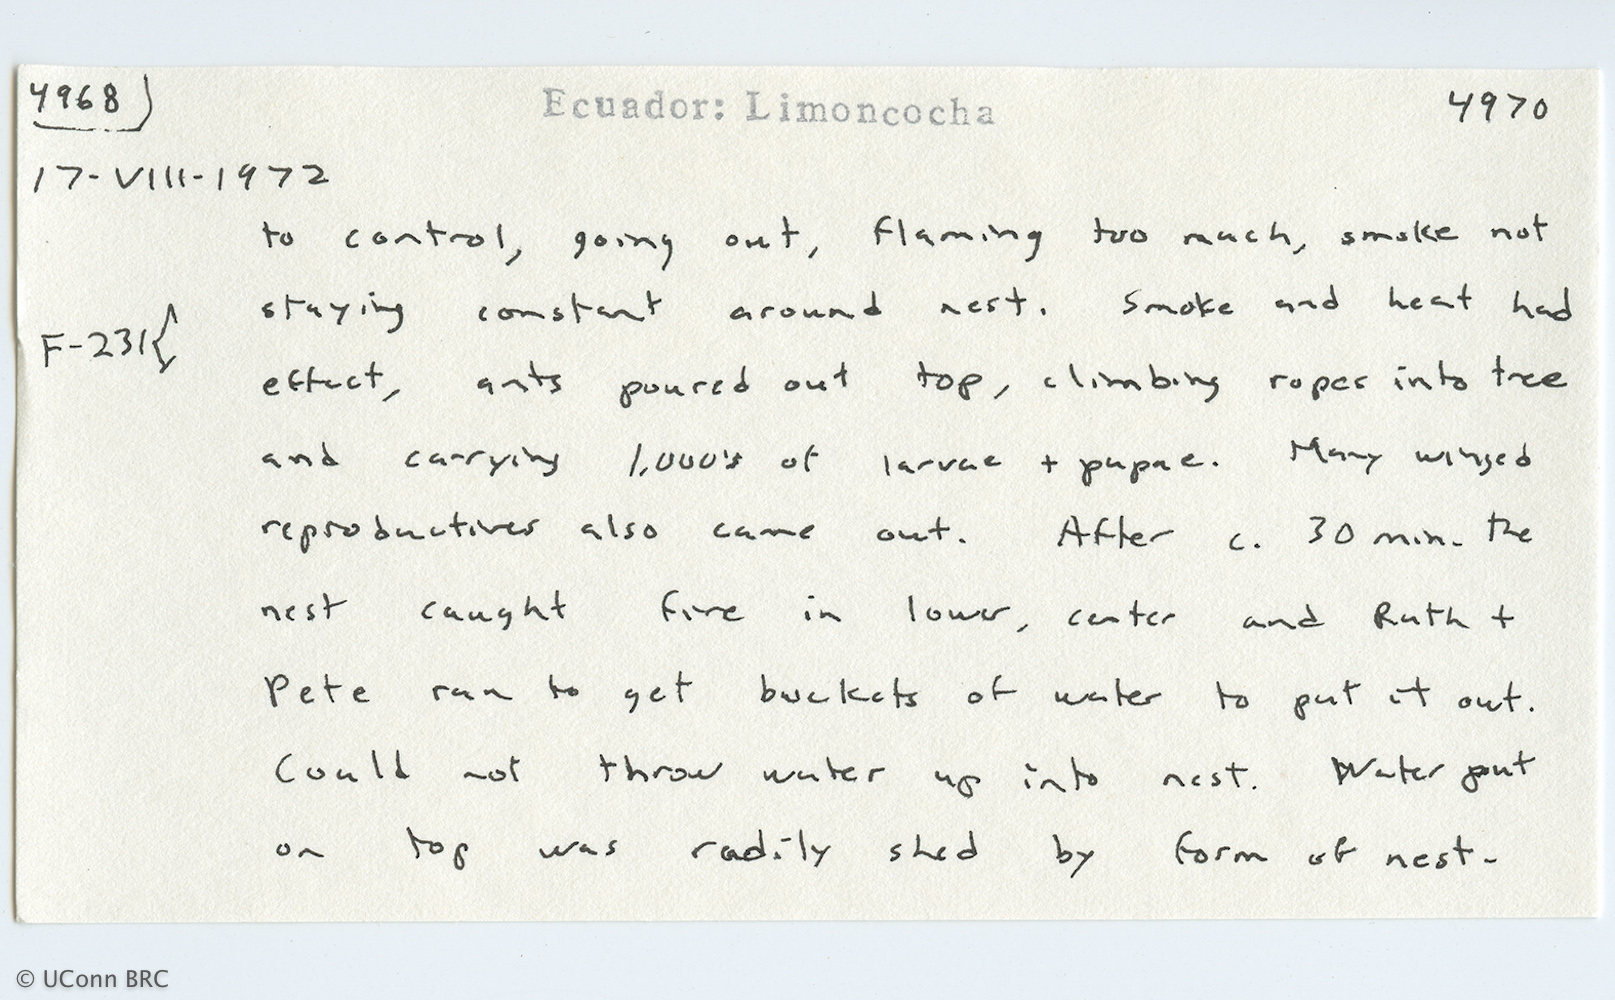 4968 Ecuador: Limoncocha 4970
17-VIII-1972
to control, going out, flaming too much, smoke not
staying constant around nest. Smoke and heat had
F-231{
effect, ants poured out top, climbing ropes into tree
and carrying 1,000's of larvae + pupae. Many winged
reproductives also came out. After c. 30 min. the
nest caught fire in lower, center and Ruth +
Pete ran to get buckets of water to put it out.
Could not throw water up into nest. Water put
on top was radily shed by form of nest.
© UConn BRC